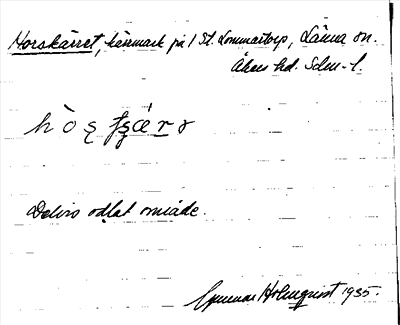 Horskärret, kärrmark på 1 St. Lommartorp, Länna sn.
Åkers hd. Sdm-l.
Delvis odlat område.
Gunnar Holmquist 1935.